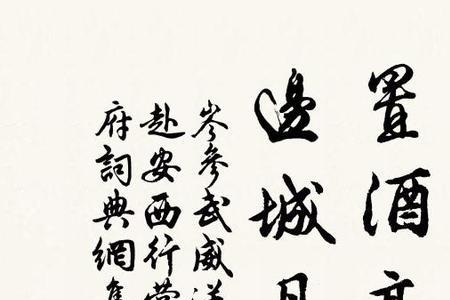 置酒高
邊城月
岑參武威送
赴安西行營
府詞典網